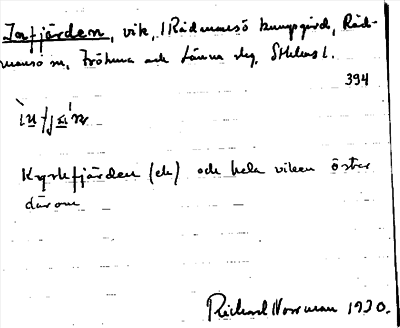 Infjärden, vik, i Rådmansö kungsgård, Råd-
mansö sn, Fröluna och Länna slg, Sthlms l.
394
Kyrkfjärden (ek) och hela viken öster
därom
Richard Norrman 1930.